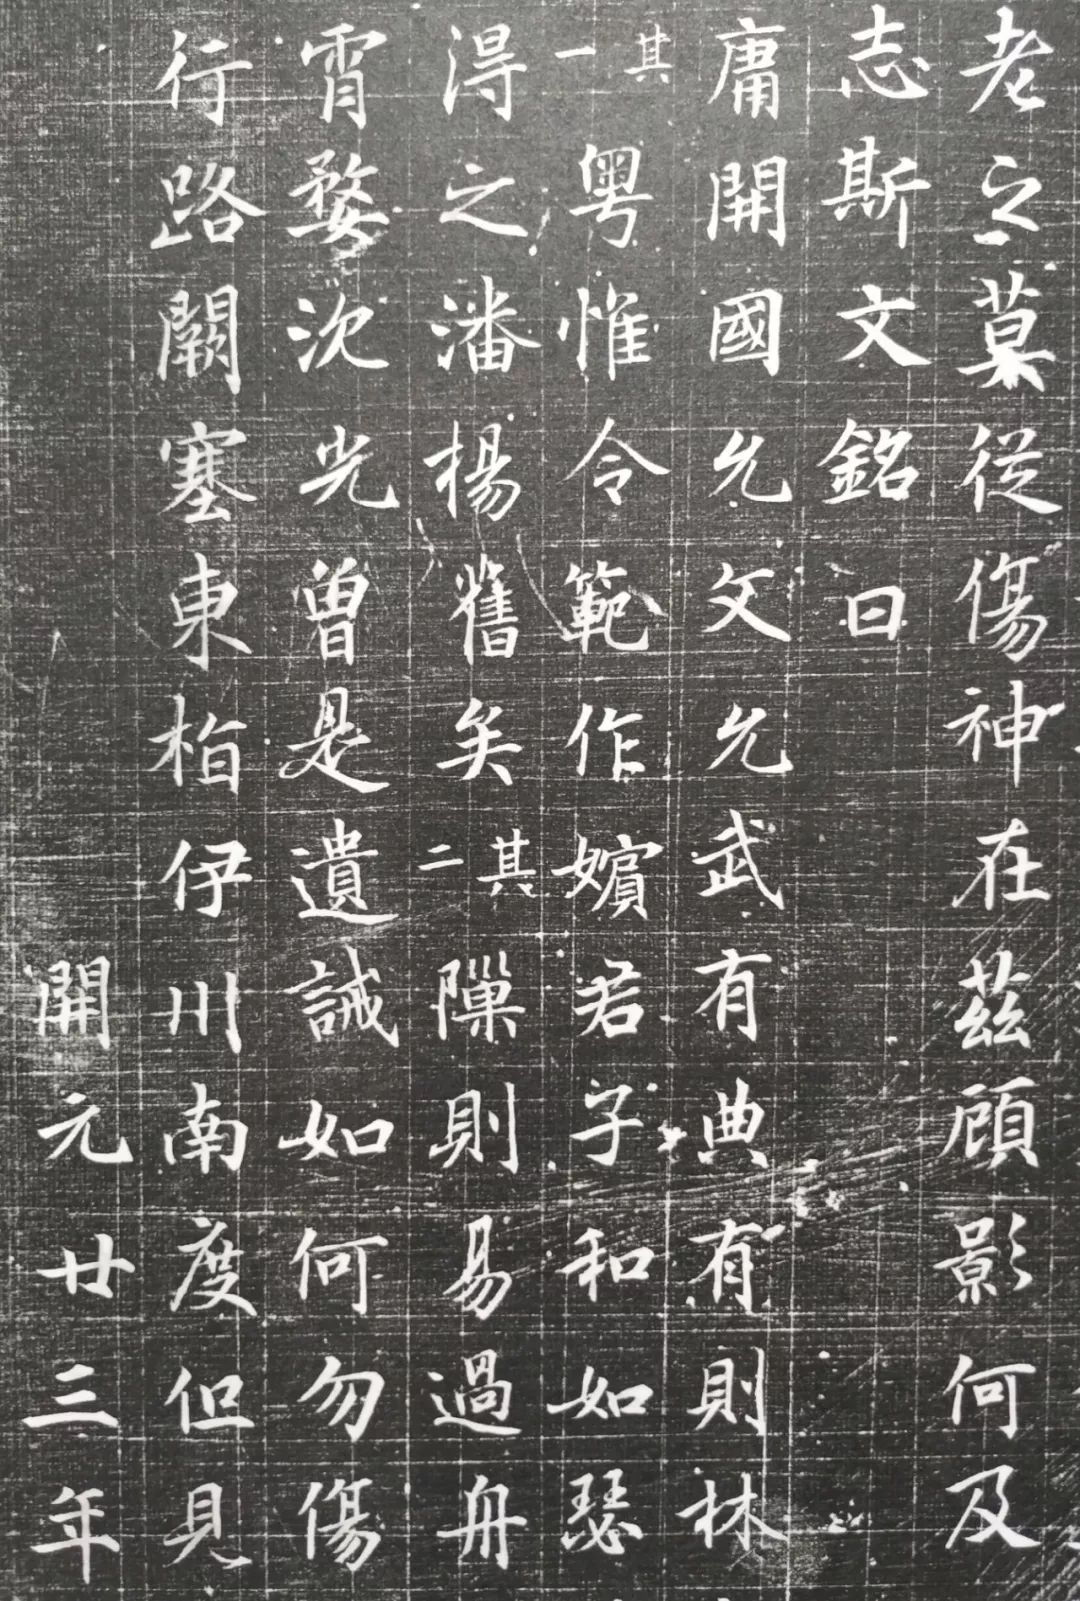 老之莫從傷神在茲顧影何及
志斯文銘曰
庸開國允文允武有典有則林
其一粤惟令範作嬪君子和如瑟
得之潘楊舊矣其二隟則易過舟
霄婺次光曽是遺誡如何勿傷
行路闕塞東柏伊川南度但見
開元廿三年